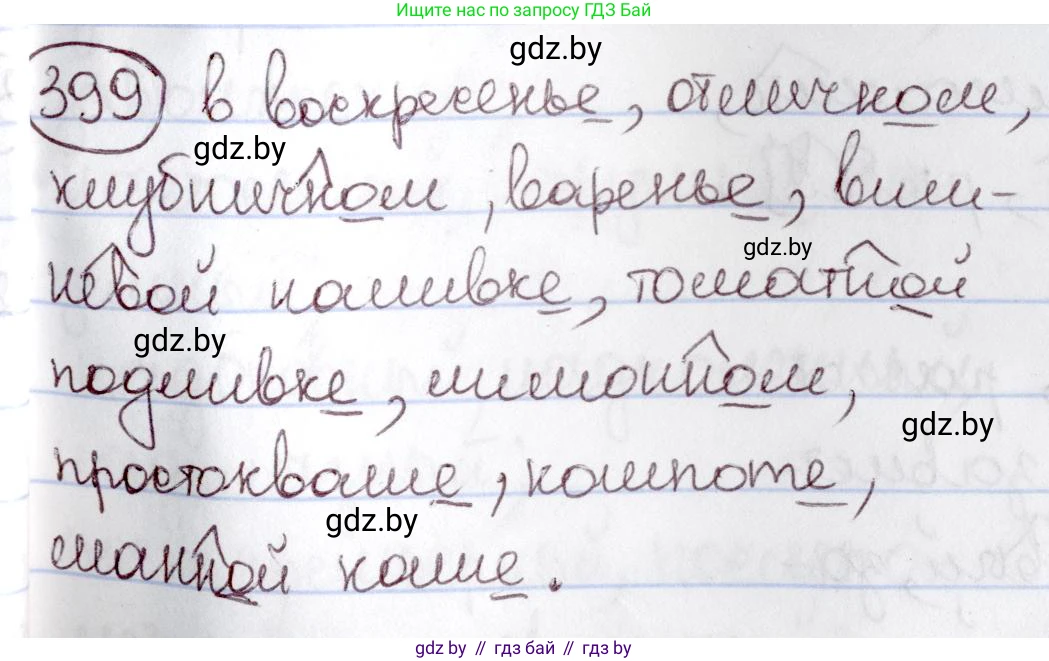 Ищите нас по запросу ГДЗ Бай
gdz.by
399 в воскресенье, отличном,
gdz.by
клубничном, варенье, виш-
gdz.by
нёвой наливке, томатной
gdz.by
подливке, лимонном,
gdz.by
простокваше, компоте,
gdz.by
манной каше.
gdz.by // гдз бай // гдз by